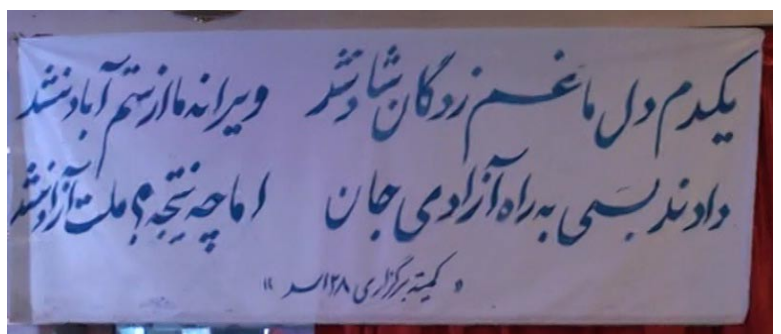 یکدم دل ما غم زدگان شاد نشد ویرانه ما از ستم آباد نشد
دادند بسی به راه آزادی جان اما چه نتیجه؟ ملت آزاد نشد
« کمیته برگزاری ۲۸ اسد »